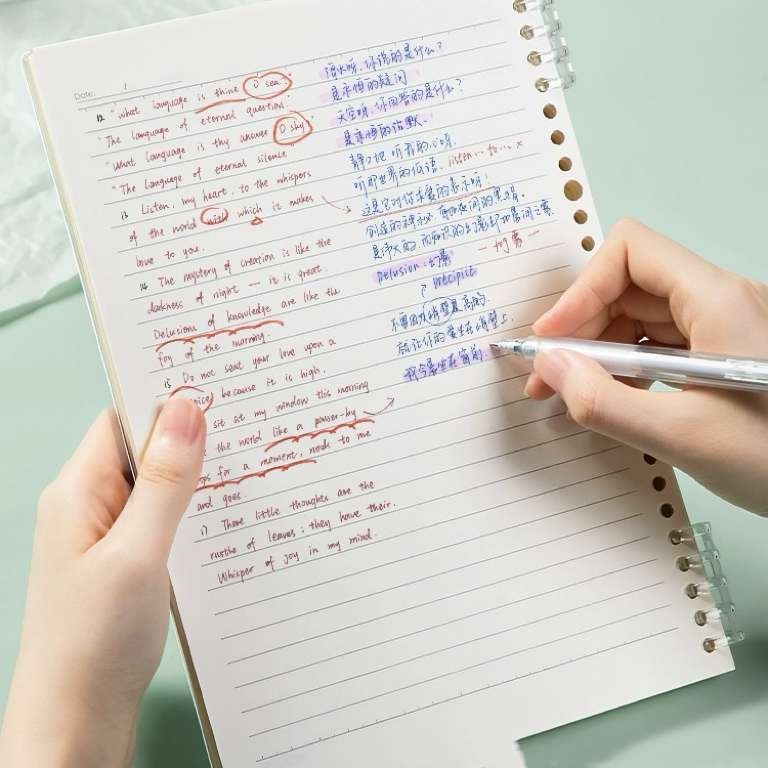 Date: /
12 "what language is thine O sea."
"The language of eternal question."
"What language is thy answer O sky"
"The Language of eternal silence
13 Listen, my heart, to the whispers
of the world with which it makes
love to you.
14 The mystery of creation is like the
darkness of night — it is great.
Delusions of knowledge are like the
fog of the morning.
15 Do not seat your love upon a
because it is high.
sit at my window this morning
the world like a passer-by
for a moment, nods to me
and goes.
17 There little thoughts are the
rustle of leaves; they have their.
Whisper of joy in my mind.
海水呀,你说的是什么?
是永恒的疑问
天空呀,你回答的是什么?
是永恒的沉默.
静静地听,我的心呀.
听那世界的低语, listen... to... x
这是它对你求爱的表示呀!
创造的神秘,有如夜间的黑暗.
是伟大的,而知识的幻影却如晨间之雾.
Delusion:幻 — fog 雾 —
precipice
不要因为峭壁是高的.
就让你的爱坐在峭壁上.
我今晨坐在窗前